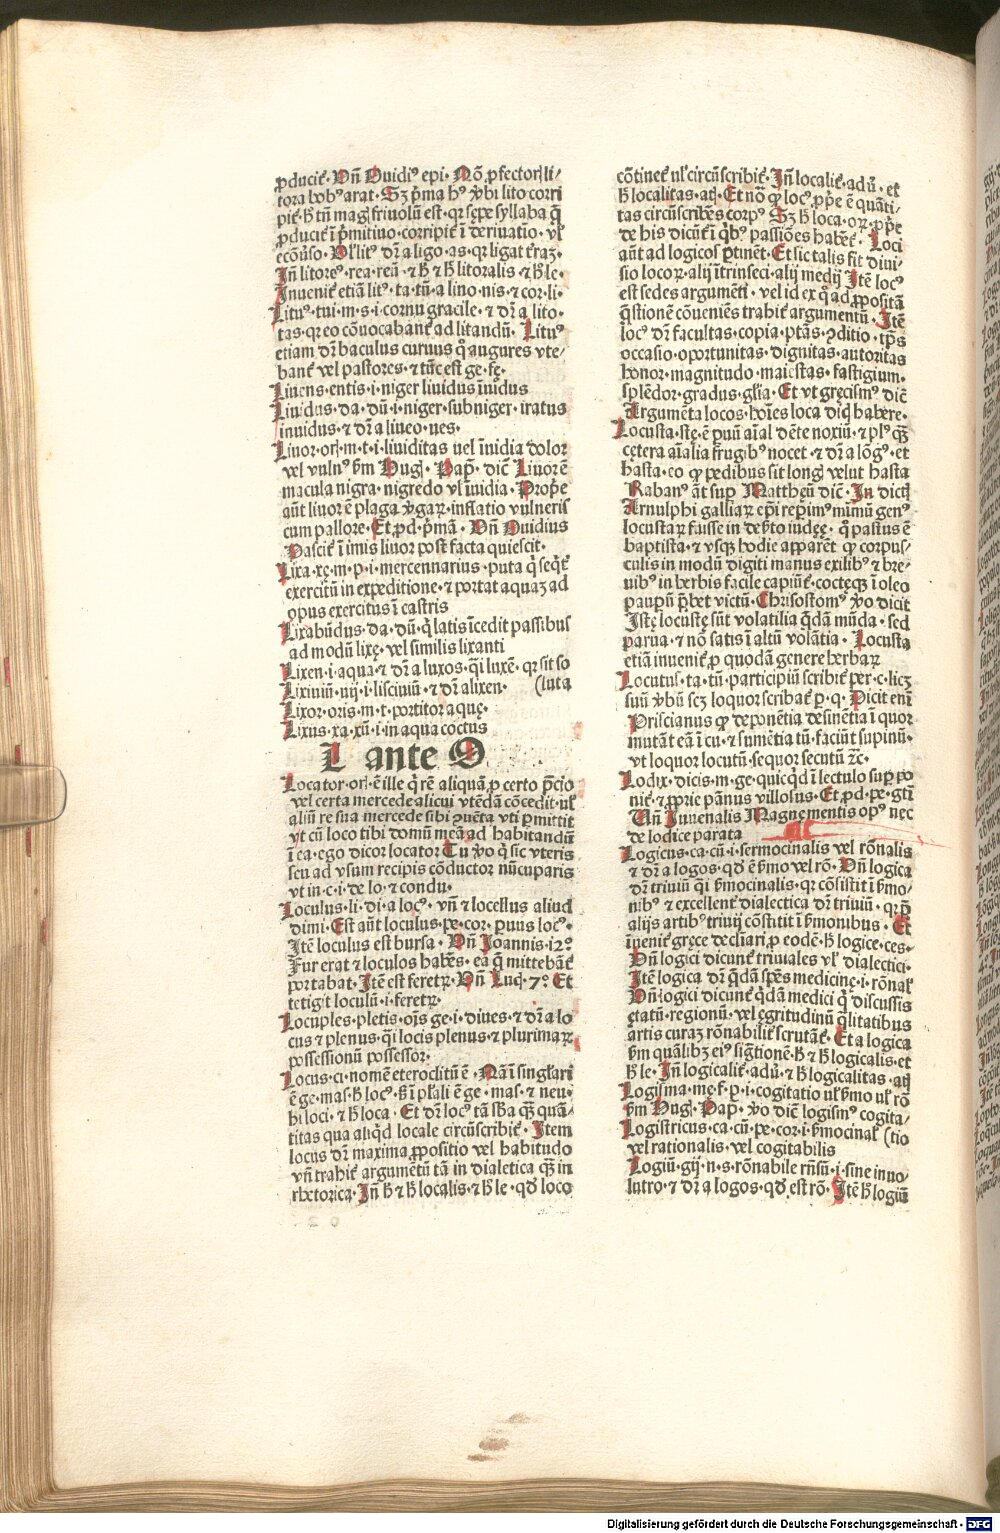 ꝓducit᷑. Vn̄ Ouidiꝰ epi. Nō ꝓfectoꝝ li/
tora bobꝰ arat. Sꝫ p̄ma hꝰ ꝟbi lito corri
pit᷑. h̄ tn̄ magꝭ friuolū est. qꝛ sępe syllaba q̄
ꝓducit᷑ ī p̄mitiuo. corripit᷑ ī deriuatio. vł
ecōuso. Vł litꝰ dr̄ a ligo. as. qꝛ ligat t̄raꝫ.
Jn̄ litoreꝰ. rea. reū. ⁊ h̄ ⁊ h̄ litoralis. ⁊ h̄ le.
Jnuenit᷑ etiā litꝰ. ta. tū. a lino. nis. ⁊ cor. li.
Lituꝰ. tui. m. s. i. cornu gracile. ⁊ dr̄ a lito.
tas. qꝛ eo cōuocabant᷑ ad litandū. Lituꝰ
etiam dr̄ baculus curuus q̄ augures vte/
bant᷑ vel pastores. ⁊ tūc est ge. fę.
Liuens. entis. i. niger liuidus īuidus
Liuidus. da. dū. i. niger. subniger. iratus
inuidus. ⁊ dr̄ a liueo. ues.
Liuor. oꝝ. m. t. i. liuiditas uel īuidia dolor
vel vulnꝰ ẜm Hugꝭ. Pap̄. dic̄ Liuor ē
macula nigra. nigredo vł īuidia. Prop̄e
aūt liuor ē plaga ꝟgaꝝ. inflatio vulneris
cum pallore. Et ꝓd. p̄mā. Vn̄ Ouidius
Pascit᷑ ī imis liuor post facta quiescit.
Lixa. xę. m. p. i. mercennarius. puta q̄ seqt᷑
exercitū in expeditione. ⁊ portat aquaꝫ ad
opus exercitus ī castris
Lixabūdus. da. dū. q̄ latis īcedit passibus
ad modū lixę. vel similis lixanti
Lixen. i. aqua. ⁊ dr̄ a luxos. q̄i luxē. qꝛ sit so
Lixiuiū. uij. i. lisciuiū. ⁊ dr̄ a lixen. (luta
Lixor. oris. m. t. portitor aquę.
Lixus. xa. xū. i. in aqua coctus
L ante O
Locator. oꝝ. ē ille q̄ rē aliquā ꝓ certo p̄cio
vel certa mercede alicui vtēdā cōcedit. uł
aliū re sua mercede sibi ꝯuēta vti ꝑmittit
vt cū loco tibi domū meā ad habitandū
ī ea. ego dicor locator Tu ꝟo q̄ sic vteris
seu ad vsum recipis cōductor nūcuparis
vt in. c. i. de lo. ⁊ condu.
Loculus. li. di. a locꝰ. vn̄ ⁊ locellus aliud
dimi. Est aūt loculus. pe. cor. ꝑuus locꝰ.
Jtē loculus est bursa. Vn̄ Joannis. 12ᵒ.
Fur erat ⁊ loculos habēs. ea q̄ mittebāt᷑
portabat. Jtē est feretꝝ. Vn̄ Lucꝭ. 7ᵒ. Et
tetigit loculū. i. feretꝝ.
Locuples. pletis. oīs ge. i. diues. ⁊ dr̄ a lo
cus ⁊ plenus. q̄i locis plenus. ⁊ plurimaꝝ
possessionū possessor.
Locus. ci. nomē eteroclitū ē. Nā ī singłari
ē ge. mas. h̄ locꝰ. ß ī płali ē ge. mas. ⁊ neu.
hi loci. ⁊ h̄ loca. Et dr̄ locꝰ tā sba qꝫ quā/
titas qua aliqd locale circūscribit᷑. Jtem
locus dr̄ maxima ꝓpositio vel habitudo
vn̄ trahit᷑ argumētū tā in dialetica qꝫ in
rhetorica. Jn̄ h̄ ⁊ h̄ localis. ⁊ h̄ le. qd loco
cōtinet᷑ uł circūscribit᷑. Jn̄ localit᷑. adū. et
h̄ localitas. atꝭ. Et nō ꝙ locꝰ. ꝓp̄e ē quāti/
tas circūscribēs corpꝰ. Sꝫ h̄ loca. oꝝ. ꝓp̄e
de his dicūt᷑ ī qͥbꝰ passiōes habēt᷑. Loci
aūt ad logicos ꝑtinēt. Et sic talis fit diui/
sio locoꝝ. alij ītrinseci. alij medij Jtē locꝰ
est sedes argumēti. vel id ex q̄ ad ꝓpositā
q̄stionē cōueniēs trahit᷑ argumentū. Jtē
locꝰ dr̄ facultas. copia. ptās. ꝯditio. tp̄s
occasio. oportunitas. dignitas. autoritas
honor. magnitudo. maiestas. fastigium.
splēdor. gradus. głia. Et vt gręcismꝰ dic̄
Argumēta locos. hoīes loca dicꝭ habere.
Locusta. stę. ē ꝑuū aīal dēte noxiū. ⁊ plꝰ qꝫ
cętera aīalia frugibꝰ nocet. ⁊ dr̄ a lōgꝰ. et
hasta. eo ꝙ pedibus sit longꝭ velut hasta
Rabanꝰ āt suꝑ Mattheū dic̄. Jn dictꝭ
Arnulphi galliaꝝ epī reꝑimꝰ mīmū genꝰ
locustaꝝ fuisse in deẜto iudęę. q̄ pastus ē
baptista. ⁊ vsqꝫ hodie apparēt ꝙ corpus/
culis in modū digiti manus exilibꝰ ⁊ bre/
uibꝰ in herbis facile capiūt᷑. coctęqꝫ ī oleo
pauꝑū p̄bēt victū. Chrisostomꝰ ꝟo dicit
Jstę locustę sūt volatilia q̄dā mūda. sed
parua. ⁊ nō satis ī altū volātia. Locusta
etiā inuenit᷑ ꝓ quodā genere herbaꝝ
Locutus. ta. tū. participiū scribit᷑ per. c. licꝫ
suū ꝟbū scꝫ loquor scribat᷑ ꝑ. q. Dicit enī
Priscianus ꝙ deponētia desinētia ī quor
mutāt eā ī cu. ⁊ sumētia tū. faciūt supinū.
vt loquor locutū. sequor secutū ⁊c.
Lodix. dicis. m. ge. quicqd ī lectulo suꝑpo
nit᷑. ⁊ ꝓprie pānus villosus. Et ꝓd. pe. gtī
Vn̄ Juuenalis Magnementis opꝰ nec
de lodice parata
Logicus. ca. cū. i. sermocinalis vel rōnalis
⁊ dr̄ a logos. qd ē ẜmo vel rō. Vn̄ logica
dr̄ triuiū q̄i ẜmocinalis. qꝛ cōsistit ī ẜmo/
nibꝰ ⁊ excellent᷑ dialectica dr̄ triuiū. qꝛ p̄
alijs artibꝰ triuij cōstitit ī ẜmonibus. Et
īuenit᷑ gręce decliari ꝓ eodē. h̄ logice. ces.
Vn̄ logici dicunt᷑ triuiales uł dialectici.
Jtē logica dr̄ q̄dā spēs medicinę. i. rōnał
Vn̄ logici dicunt᷑ q̄dā medici q̄ discussis
ętatū. regionū. vel ęgritudinū q̄litatibus
artis curaꝫ rōnabilit᷑ scrutāt᷑. Et a logica
ẜm quālibꝫ eiꝰ sig̅tionē. h̄ ⁊ h̄ logicalis. et
h̄ le. Jn̄ logicalit᷑. adū. ⁊ h̄ logicalitas. atꝭ
Logisma. mę. f. p. i. cogitatio uł ẜmo uł rō
ẜm Hugꝭ. Pap̄. ꝟo dic̄ logismꝰ cogita/
Logistricus. ca. cū. pe. cor. i. ẜmocinał (tio
vel rationalis. vel cogitabilis
Logiū. gij. n. s. rōnabile rn̄sū. i. sine inuo/
lutro. ⁊ dr̄ a logos. qd est rō. Jtē h̄ logiū
Digitalisierung gefördert durch die Deutsche Forschungsgemeinschaft - DFG